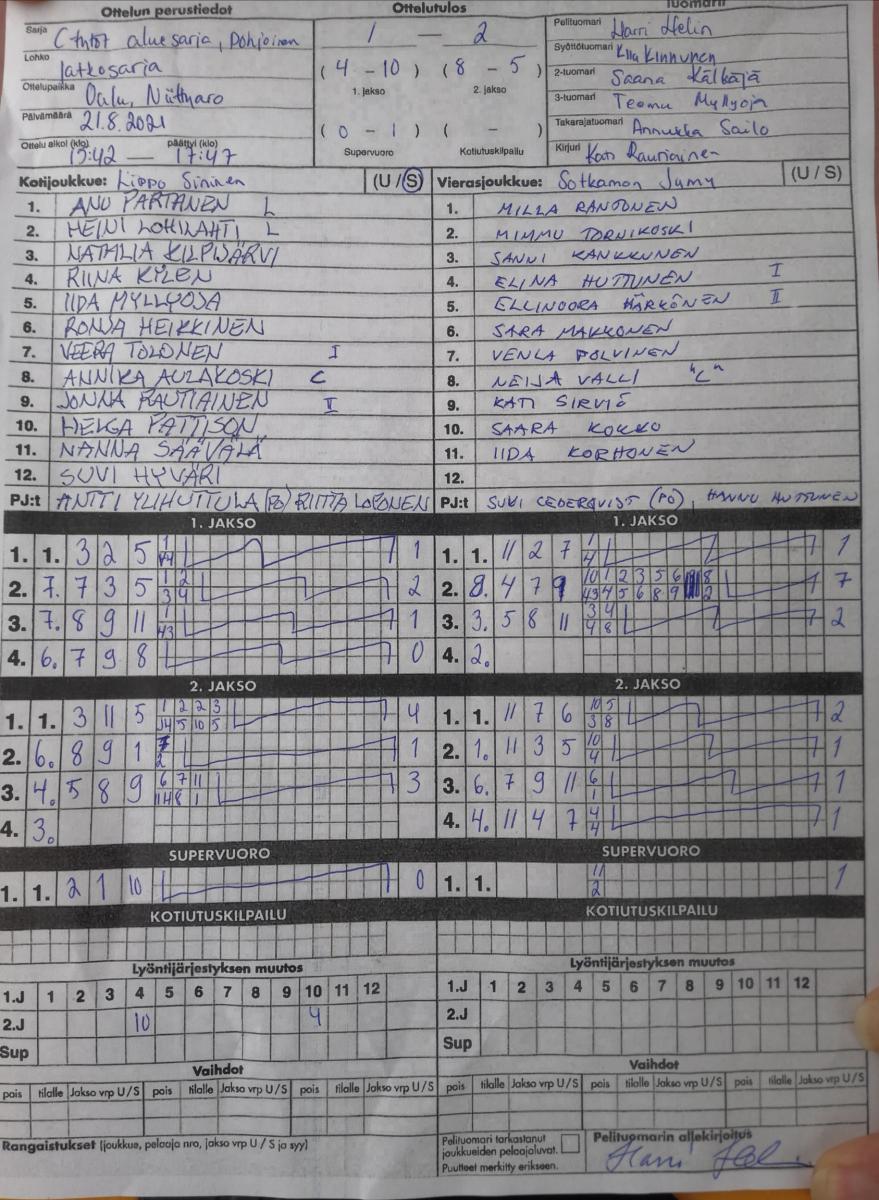 Ottelun perustiedot
Sarja C tytöt aluesarja, pohjoinen
Lohko Jatkosarja
Ottelupaikka Oulu, Niittyaro
Päivämäärä 21.8.2021
Ottelu alkoi (klo) päättyi (klo)
15:42 — 17:47
Ottelutulos
1 - 2
( 4 - 10 ) ( 8 - 5 )
1. jakso 2. jakso
( 0 - 1 ) ( - )
Supervuoro Kotiutuskilpailu
Tuomarit
Pelituomari Harri Helin
Syöttötuomari Kinnunen
2-tuomari Saana Kälkäjä
3-tuomari Teemu Myllyoja
Takarajatuomari Annukka Sailo
Kirjuri Kati Rautiainen
Kotijoukkue: Lippo Sininen (U / S)
1. ANU PARTANEN L
2. HEINI LOHILAHTI L
3. NATALIA KILPIJÄRVI
4. RIINA KYLEN
5. IIDA MYLLYOJA
6. RONJA HEIKKINEN
7. VEERA TOLONEN I
8. ANNIKA AULAKOSKI C
9. JONNA RAUTIAINEN II
10. HELGA PATTISON
11. NANNA SÄÄVÄLÄ
12. SUVI HYVÄRI
PJ:t ANTTI YLIHUTTULA (PJ) RIITTA LOPONEN
Vierasjoukkue: Sotkamon Jymy (U / S)
1. MILLA RANTONEN
2. MIMMU TORNIKOSKI
3. SANNI KANKKUNEN
4. ELINA HUTTUNEN I
5. ELLINOORA HÄRKÖNEN II
6. SARA MAKKONEN
7. VENLA POLVINEN
8. NEIJA VALLI "C"
9. KATI SIRVIÖ
10. SAARA KOKKO
11. IIDA KORHONEN
12.
PJ:t SUVI CEDERQVIST (PJ), HANNU HUTTUNEN
1. JAKSO
1. 1. 3 2 5 1
2. 7. 7 3 5 1 2 2
3 4
3. 7. 8 9 11 1 1
4. 6. 7 9 8 0
1. JAKSO
1. 1. 11 2 7 1 1
4
2. 8. 4 7 9 10 1 2 3 5 6 8 7
3. 3. 5 8 11 3 4 2
4 8
4. 2.
2. JAKSO
1. 1. 3 11 5 1 2 2 3 4
5 10 5
2. 6. 8 9 1 1
2
3. 4. 5 8 9 6 7 11 3
4. 3.
2. JAKSO
1. 1. 11 7 6 10 5 2
3 8
2. 1. 11 3 5 10 1
4
3. 6. 7 9 11 6 1
1
4. 4. 11 4 7 4 1
4
SUPERVUORO
1. 1. 2 1 10 0
SUPERVUORO
1. 1. 11 1
2
KOTIUTUSKILPAILU
KOTIUTUSKILPAILU
Lyöntijärjestyksen muutos
1.J 1 2 3 4 5 6 7 8 9 10 11 12
2.J 10 4
Sup
Lyöntijärjestyksen muutos
1.J 1 2 3 4 5 6 7 8 9 10 11 12
2.J
Sup
Vaihdot
pois tilalle Jakso vrp U/S pois tilalle Jakso vrp U/S pois tilalle Jakso vrp U/S
Vaihdot
pois tilalle Jakso vrp U/S pois tilalle Jakso vrp U/S pois tilalle Jakso vrp U/S
Rangaistukset (joukkue, pelaaja nro, jakso vrp U / S ja syy)
Pelituomari tarkastanut
joukkueiden pelaajaluvat.
Puutteet merkitty erikseen.
Pelituomarin allekirjoitus
Harri Helin